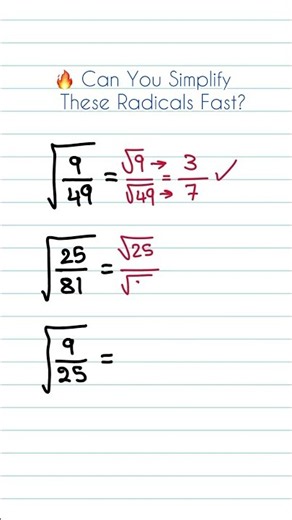 🔥 Can You Simplify
These Radicals Fast?
√(9/49) = √9 → / √49 → = 3/7 ✓
√(25/81) = √25 / √.
√(9/25) =